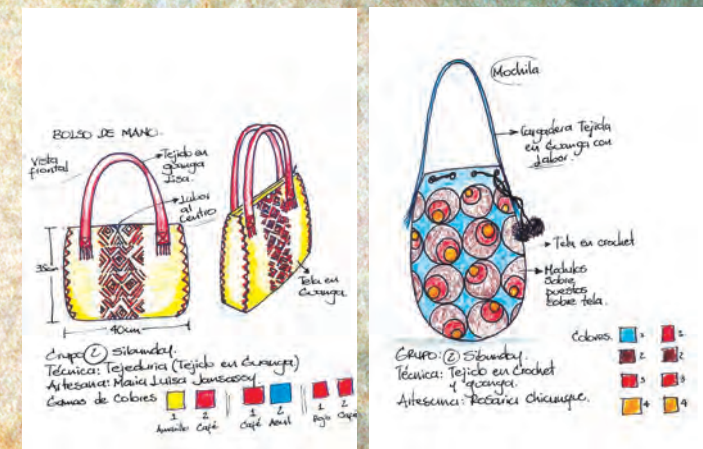 BOLSO DE MANO.
Vista
frontal
Tejido en
guanga
lisa.
Labor
al
Centro
35cm
40cm
Tela en
Guanga
Grupo 2 Sibundoy.
Técnica: Tejeduria (Tejido en Guanga)
Artesana: Maria Luisa Jansasoy
Gamas de Colores
1 2 1 2 1 2
Amarillo Café Café Azul Rojo Café
Mochila
Cargadera Tejida
en Guanga con
Labor.
Tela en crochet
Modulos
Sobre
puestos
Sobre tela.
Colores. 1 1
2 2
3 3
4 4
GRUPO: 2 Sibundoy.
Técnica: Tejido en Crochet
y guanga.
Artesana: Rosario Chicunque.